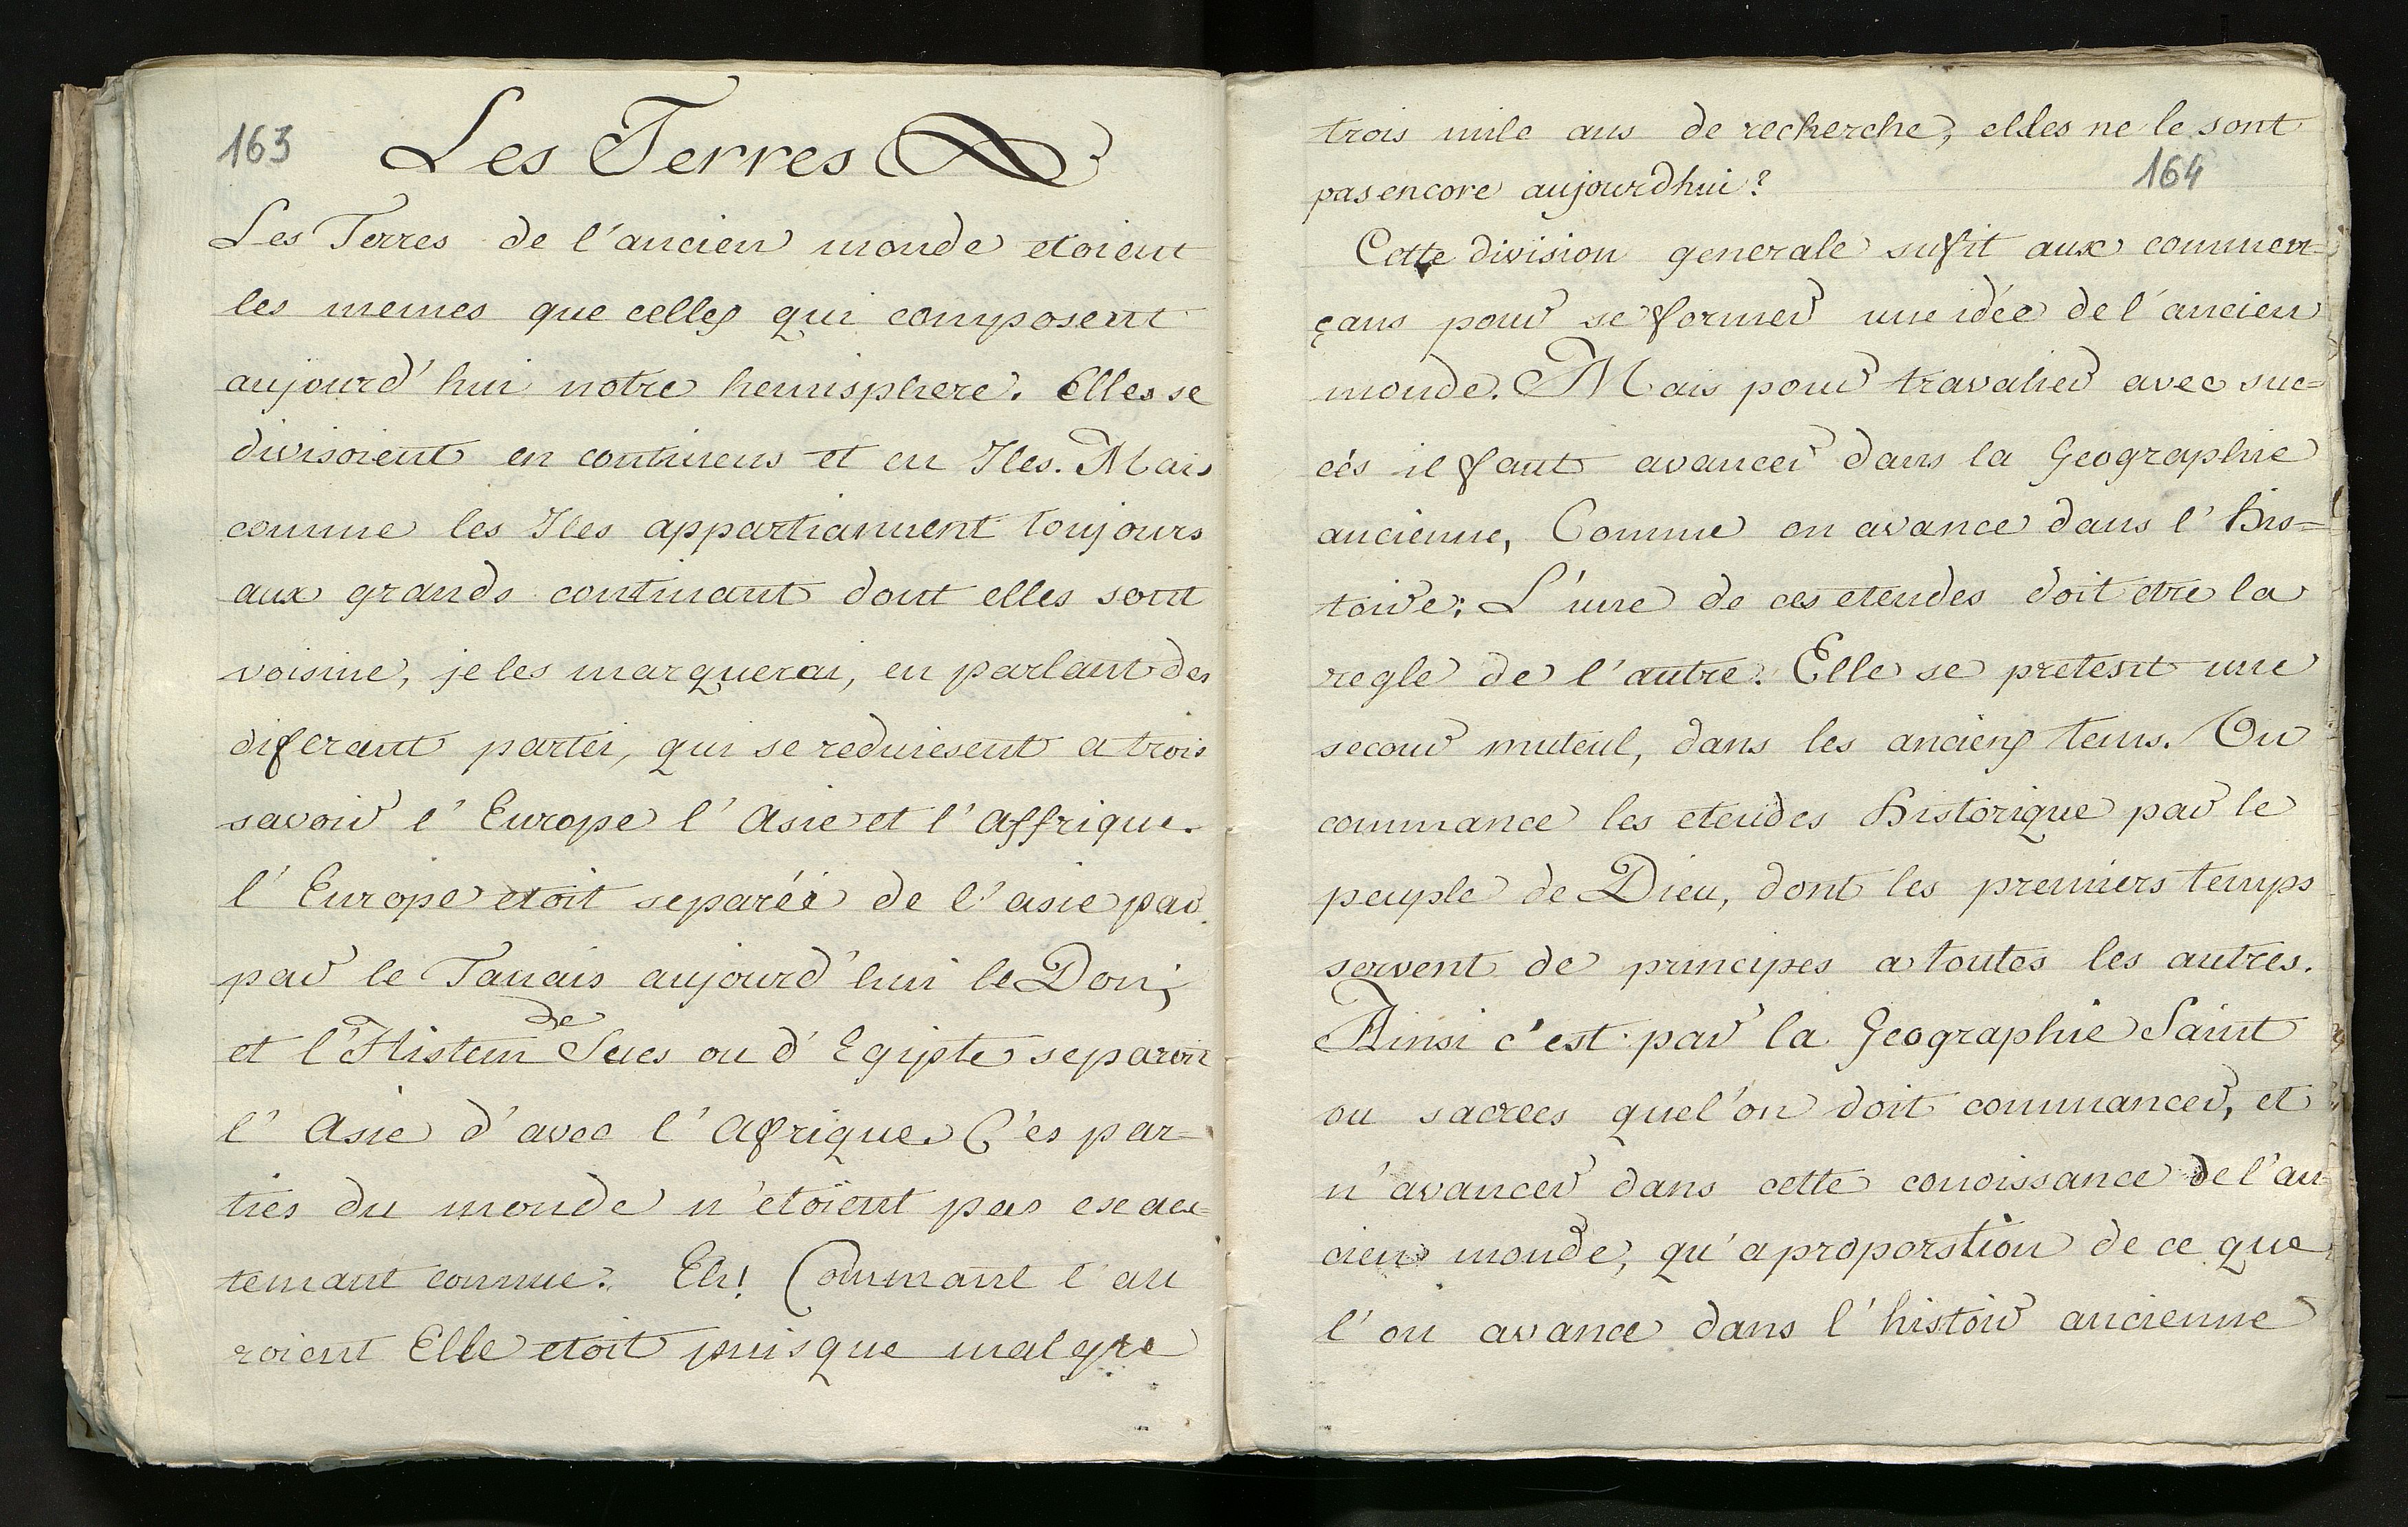 163
Les Terres
Les Terres de l'ancien monde etoient
les memes que celles qui composent
aujourd'hui notre hemisphere. Elles se
divisoient en continens et en Iles. Mais
comme les Iles appartianment toujours
aux grands continant dont elles sont
voisine, je les marquerai, en parlant des
diferant partei, qui se reduiesent a trois
savoir l'Europe l'Asie et l'Affrique.
l'Europe etoit separéé de l'asie par
par le Tanais aujourd'hui le Don;
de
et l'Histem Sues ou d'Egipte separoit
l'Asie d'avec l'Afrique. C'es par=
ties du monde n'etoient pas exac=
temant connue. Eh! Commant l'au
roient Elle etoit puisque malgre
trois mile ans de recherche, elles ne le sont
164
pas encore aujourdhui?
Cette division generale sufit aux commen=
çans pour se former une idée de l'ancien
monde. Mais pour travalier avec suc=
cés il faut avancer dans la Geographie
ancienne, Comme on avance dans l'His=
toire; L'une de ces eteudes doit etre la
regle de l'autre. Elle se pretent une
secour muteul, dans les anciens tems. On
commance les eteudes Historique par le
peuple de Dieu, dont les premiers temps
servent de principes a toutes les autres.
Ainsi c'est par la Geographie Saint
ou sacrees quel'on doit commancer, et
n'avancer dans cette conoissance de l'an=
cien monde, qu'aproporstion de ce que
l'on avance dans l'histoir ancienne